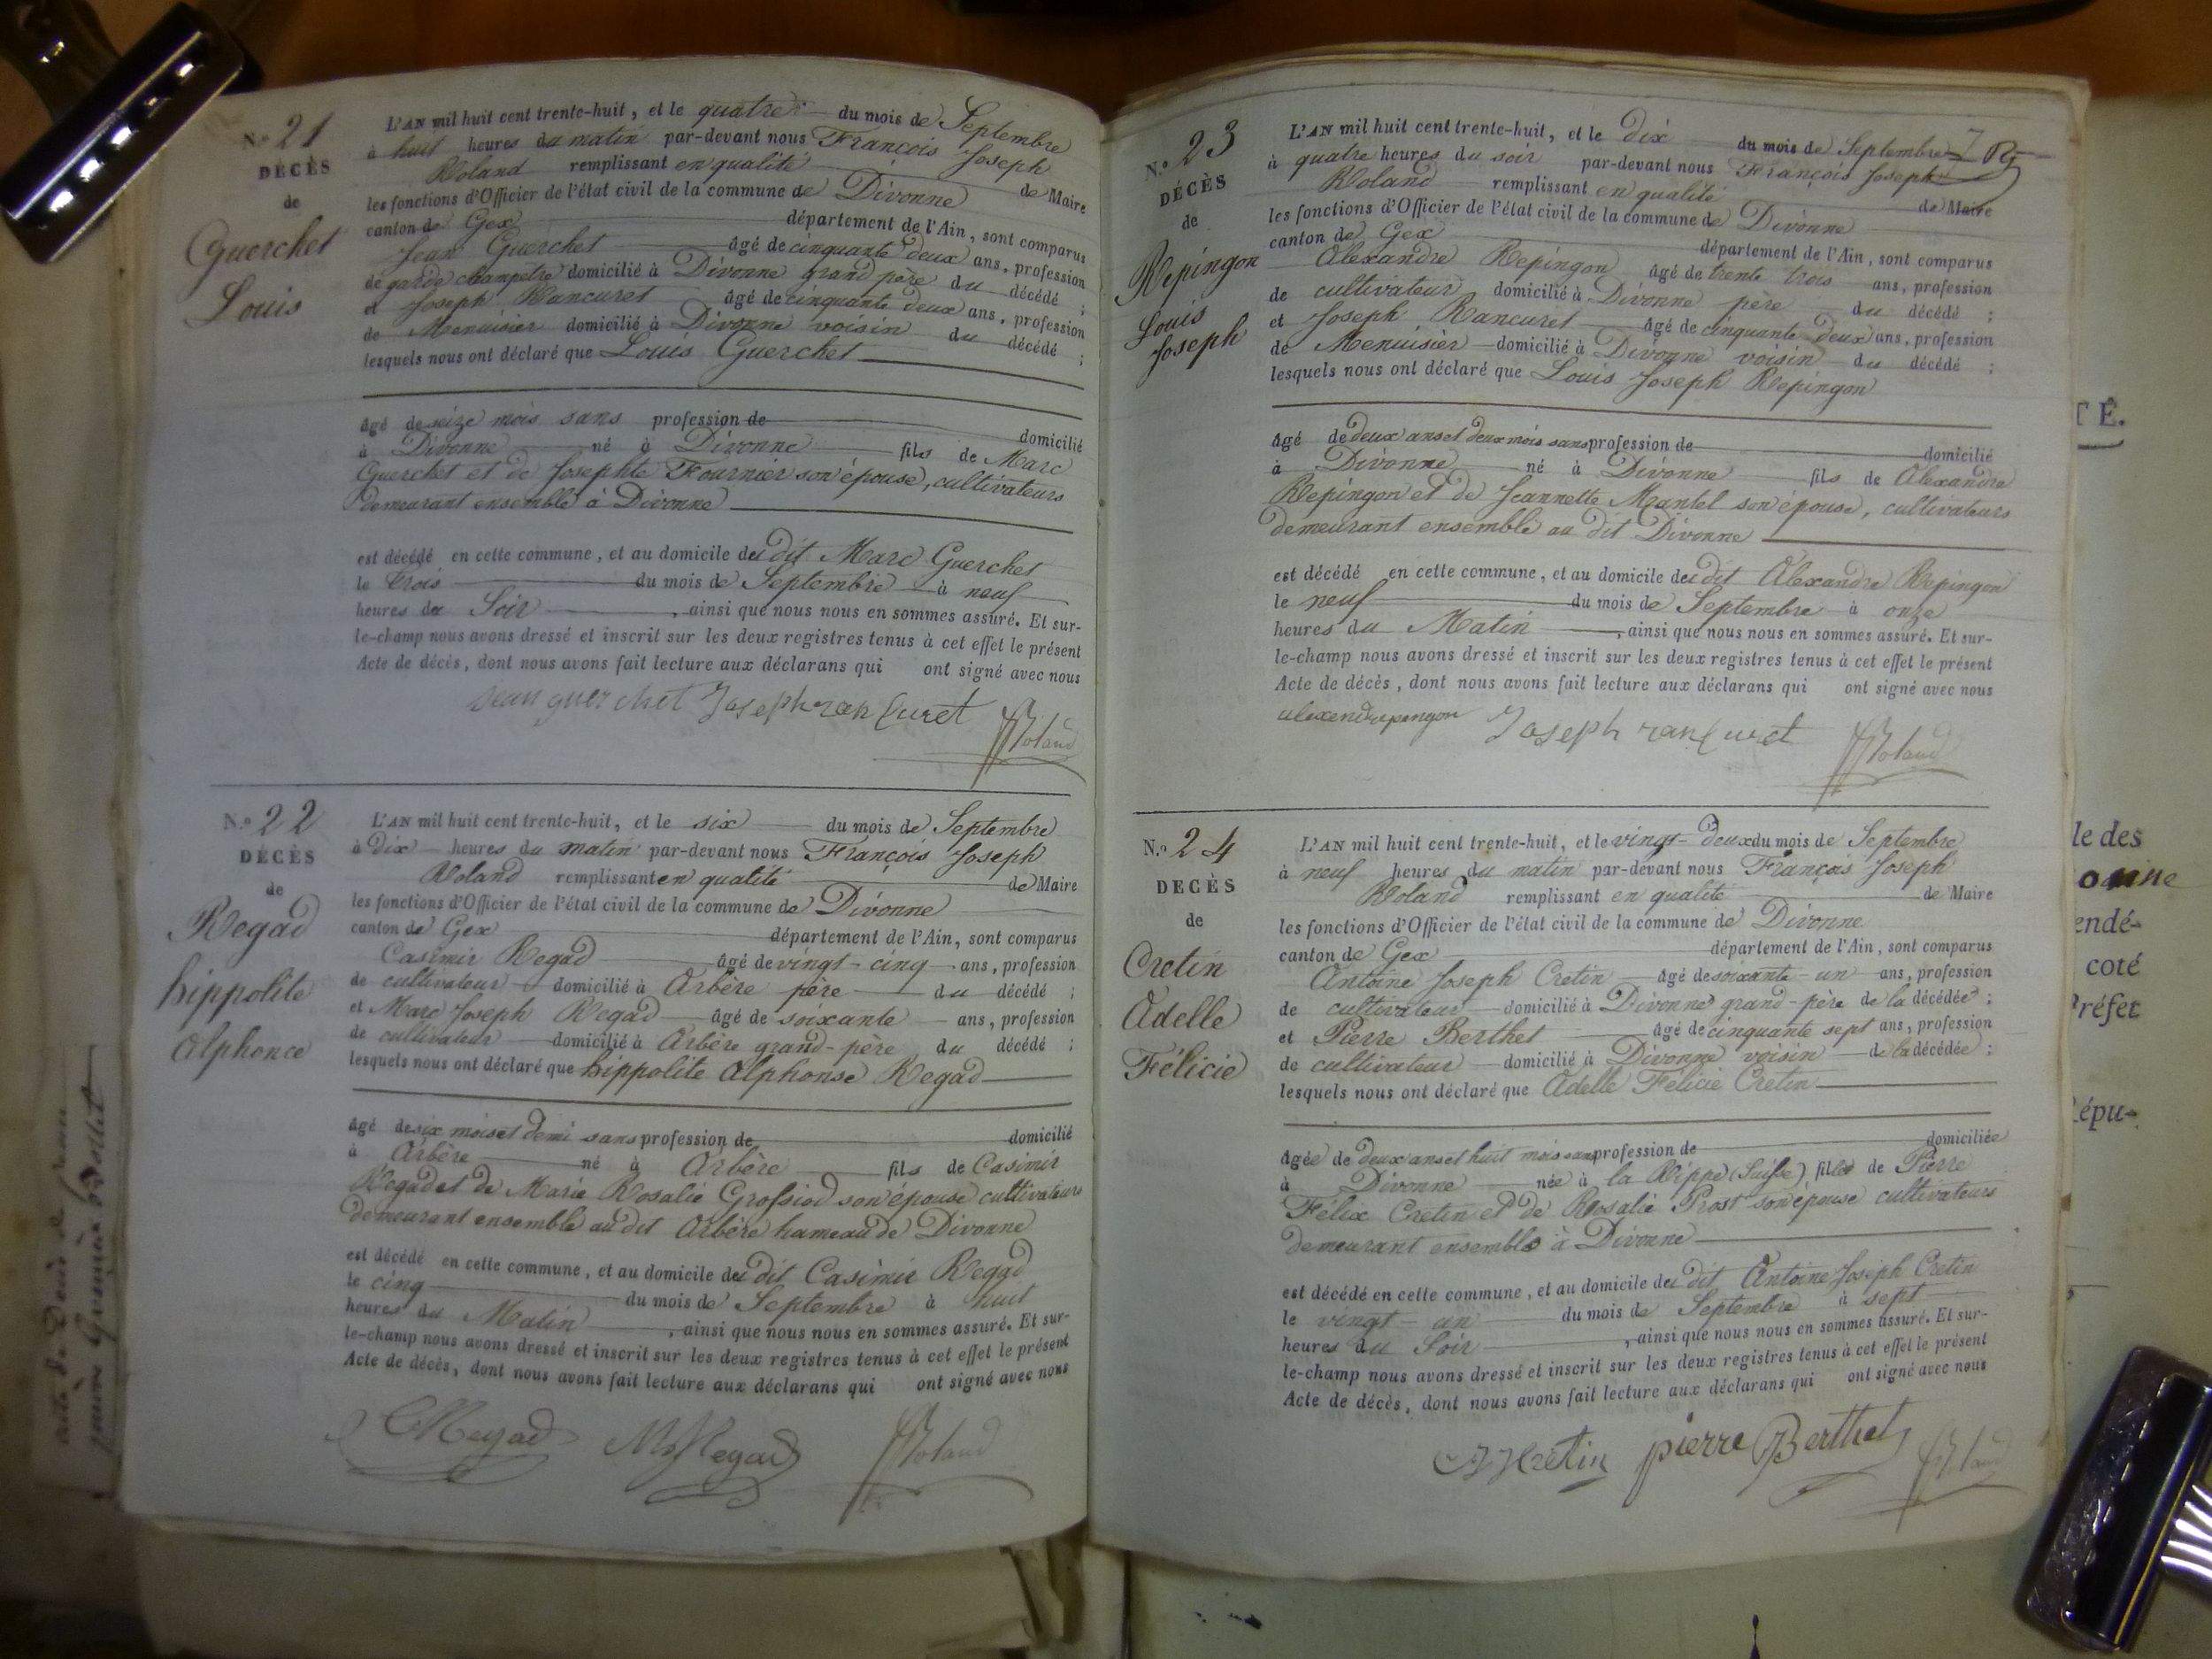 N.o 21
DÉCÈS
de
Guerchet
Louis
L'AN mil huit cent trente-huit, et le quatre du mois de Septembre
à huit heures du matin par-devant nous François Joseph
Roland remplissant en qualité de Maire
les fonctions d'Officier de l'état civil de la commune de Divonne
canton de Gex département de l'Ain, sont comparus
Jean Guerchet âgé de cinquante deux ans, profession
de garde champetre domicilié à Divonne grand père du décédé ;
et Joseph Rancuret âgé de cinquante deux ans, profession
de Menuisier domicilié à Divonne voisin du décédé ;
lesquels nous ont déclaré que Louis Guerchet
âgé de seize mois sans profession de domicilié
à Divonne né à Divonne fils de Marc
Guerchet et de Josephte Fournier son épouse, cultivateurs
demeurant ensemble à Divonne
est décédé en cette commune, et au domicile du dit Marc Guerchet
le trois du mois de Septembre à neuf
heures du Soir, ainsi que nous nous en sommes assuré. Et sur-
le-champ nous avons dressé et inscrit sur les deux registres tenus à cet effet le présent
Acte de décès, dont nous avons fait lecture aux déclarans qui ont signé avec nous
Jean guerchet Joseph rancuret Roland
N.o 22
DÉCÈS
de
Regad
hippolite
Alphonce
L'AN mil huit cent trente-huit, et le six du mois de Septembre
à dix heures du matin par-devant nous François Joseph
Roland remplissant en qualité de Maire
les fonctions d'Officier de l'état civil de la commune de Divonne
canton de Gex département de l'Ain, sont comparus
Casimir Regad âgé de vingt-cinq ans, profession
de cultivateur domicilié à Arbère père du décédé ;
et Marc Joseph Regad âgé de soixante ans, profession
de cultivateur domicilié à Arbère grand-père du décédé ;
lesquels nous ont déclaré que hippolite Alphonse Regad
âgé de six mois et demi sans profession de domicilié
à Arbère né à Arbère fils de Casimir
Regad et de Marie Rosalie Grossiod son épouse cultivateurs
demeurant ensemble au dit Arbère hameau de Divonne
est décédé en cette commune, et au domicile du dit Casimir Regad
le cinq du mois de Septembre à huit
heures du Matin, ainsi que nous nous en sommes assuré. Et sur-
le-champ nous avons dressé et inscrit sur les deux registres tenus à cet effet le présent
Acte de décès, dont nous avons fait lecture aux déclarans qui ont signé avec nous
CRegad MJRegad Roland
N.o 23
DÉCÈS
de
Repingon
Louis
Joseph
L'AN mil huit cent trente-huit, et le dix du mois de Septembre 7
à quatre heures du soir par-devant nous François Joseph
Roland remplissant en qualité de Maire
les fonctions d'Officier de l'état civil de la commune de Divonne
canton de Gex département de l'Ain, sont comparus
Alexandre Repingon âgé de trente trois ans, profession
de cultivateur domicilié à Divonne père du décédé ;
et Joseph Rancuret âgé de cinquante deux ans, profession
de Menuisier domicilié à Divonne voisin du décédé ;
lesquels nous ont déclaré que Louis Joseph Repingon
âgé de deux ans et deux mois sans profession de domicilié
à Divonne né à Divonne fils de Alexandre
Repingon et de Jeannette Mantel son épouse, cultivateurs
demeurant ensemble au dit Divonne
est décédé en cette commune, et au domicile du dit Alexandre Repingon
le neuf du mois de Septembre à onze
heures du Matin, ainsi que nous nous en sommes assuré. Et sur-
le-champ nous avons dressé et inscrit sur les deux registres tenus à cet effet le présent
Acte de décès, dont nous avons fait lecture aux déclarans qui ont signé avec nous
Joseph rancuret Roland
N.o 24
DECÈS
de
Cretin
Adelle
Félicie
L'AN mil huit cent trente-huit, et le vingt-deux du mois de Septembre
à neuf heures du matin par-devant nous François Joseph
Roland remplissant en qualité de Maire
les fonctions d'Officier de l'état civil de la commune de Divonne
canton de Gex département de l'Ain, sont comparus
Antoine Joseph Cretin âgé de soixante-un ans, profession
de cultivateur domicilié à Divonne grand-père de la décédée ;
et Pierre Berthet âgé de cinquante sept ans, profession
de cultivateur domicilié à Divonne voisin de la décédée ;
lesquels nous ont déclaré que Adelle Félicie Cretin
âgée de deux ans et huit mois sans profession de domiciliée
à Divonne née à la Rippe (Suisse) fille de Pierre
Félix Cretin et de Rosalie Prost son épouse cultivateurs
demeurant ensemble à Divonne
est décédé en cette commune, et au domicile du dit Antoine Joseph Cretin
le vingt-un du mois de Septembre à sept
heures du Soir, ainsi que nous nous en sommes assuré. Et sur-
le-champ nous avons dressé et inscrit sur les deux registres tenus à cet effet le présent
Acte de décès, dont nous avons fait lecture aux déclarans qui ont signé avec nous
AJCretin pierre Berthet Roland
TÉ.
le des
endé-
coté
Préfet
Répu-